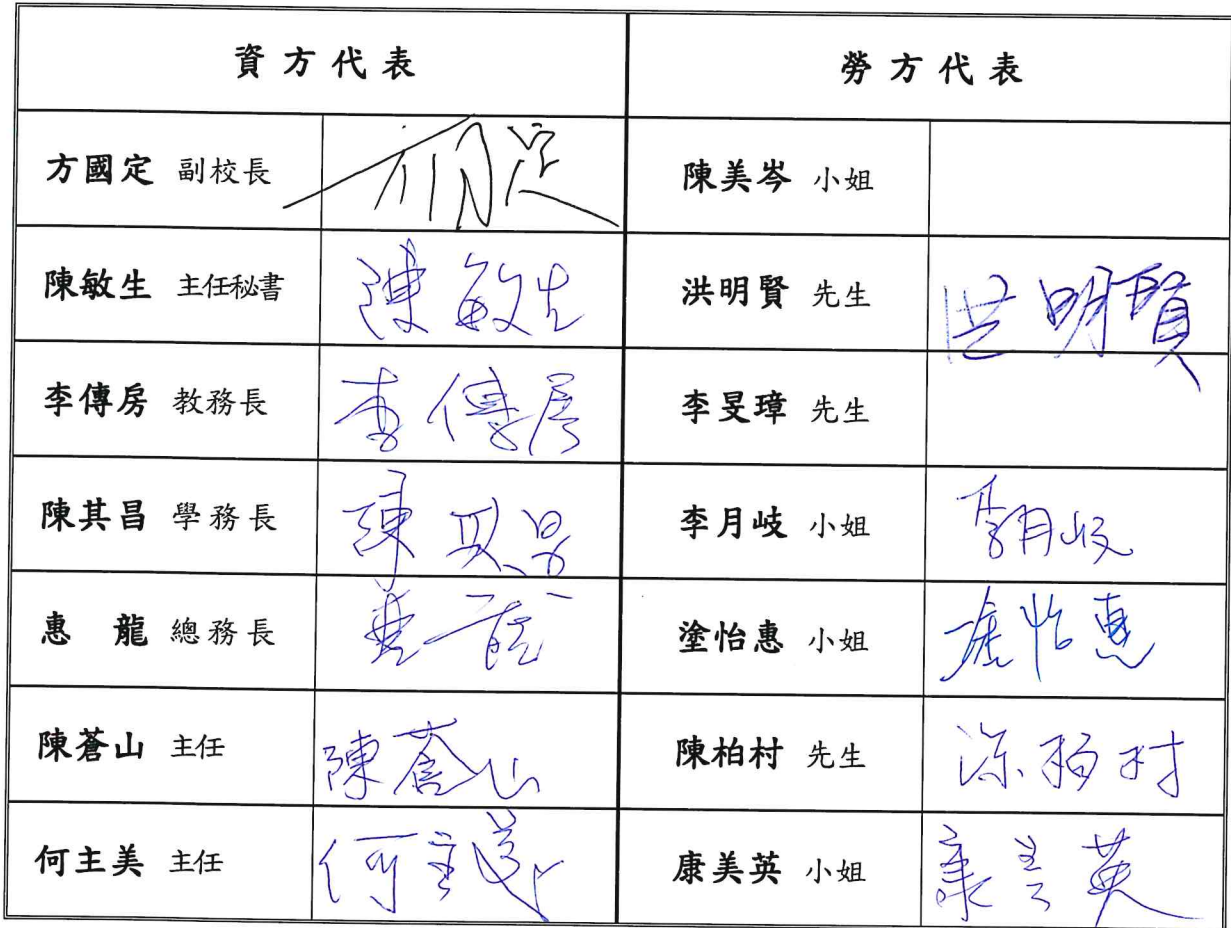 資方代表 勞方代表
方國定 副校長 方國定 陳美岑 小姐
陳敏生 主任秘書 陳敏生 洪明賢 先生 洪明賢
李傳房 教務長 李傳房 李旻璋 先生
陳其昌 學務長 陳其昌 李月岐 小姐 李月岐
惠龍 總務長 惠龍 塗怡惠 小姐 塗怡惠
陳蒼山 主任 陳蒼山 陳柏村 先生 陳柏村
何主美 主任 何主美 康美英 小姐 康美英